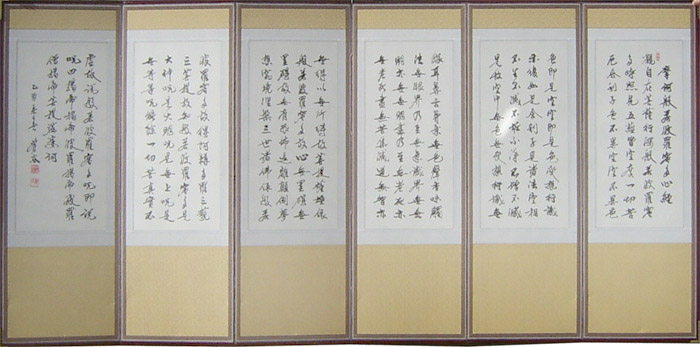 摩訶般若波羅密多心經
觀自在菩薩行深般若波羅密
多時照見五蘊皆空度一切苦
厄舍利子色不異空空不異色
色即是空空即是色受想行識
亦復如是舍利子是諸法空相
不生不滅不垢不淨不增不減
是故空中無色無受想行識無
眼耳鼻舌身意無色聲香味觸
法無眼界乃至無意識界無無
明亦無無明盡乃至無老死亦
無老死盡無苦集滅道無智亦
無得以無所得故菩提薩埵依
般若波羅密多故心無罣礙無
罣礙故無有恐怖遠離顛倒夢
想究竟涅槃三世諸佛依般若
波羅密多故得阿耨多羅三藐
三菩提故知般若波羅密多是
大神呪是大明呪是無上呪是
無等等呪能除一切苦真實不
虛故說般若波羅密多呪即說
呪曰揭帝揭帝波羅揭帝波羅
僧揭帝菩提娑婆訶